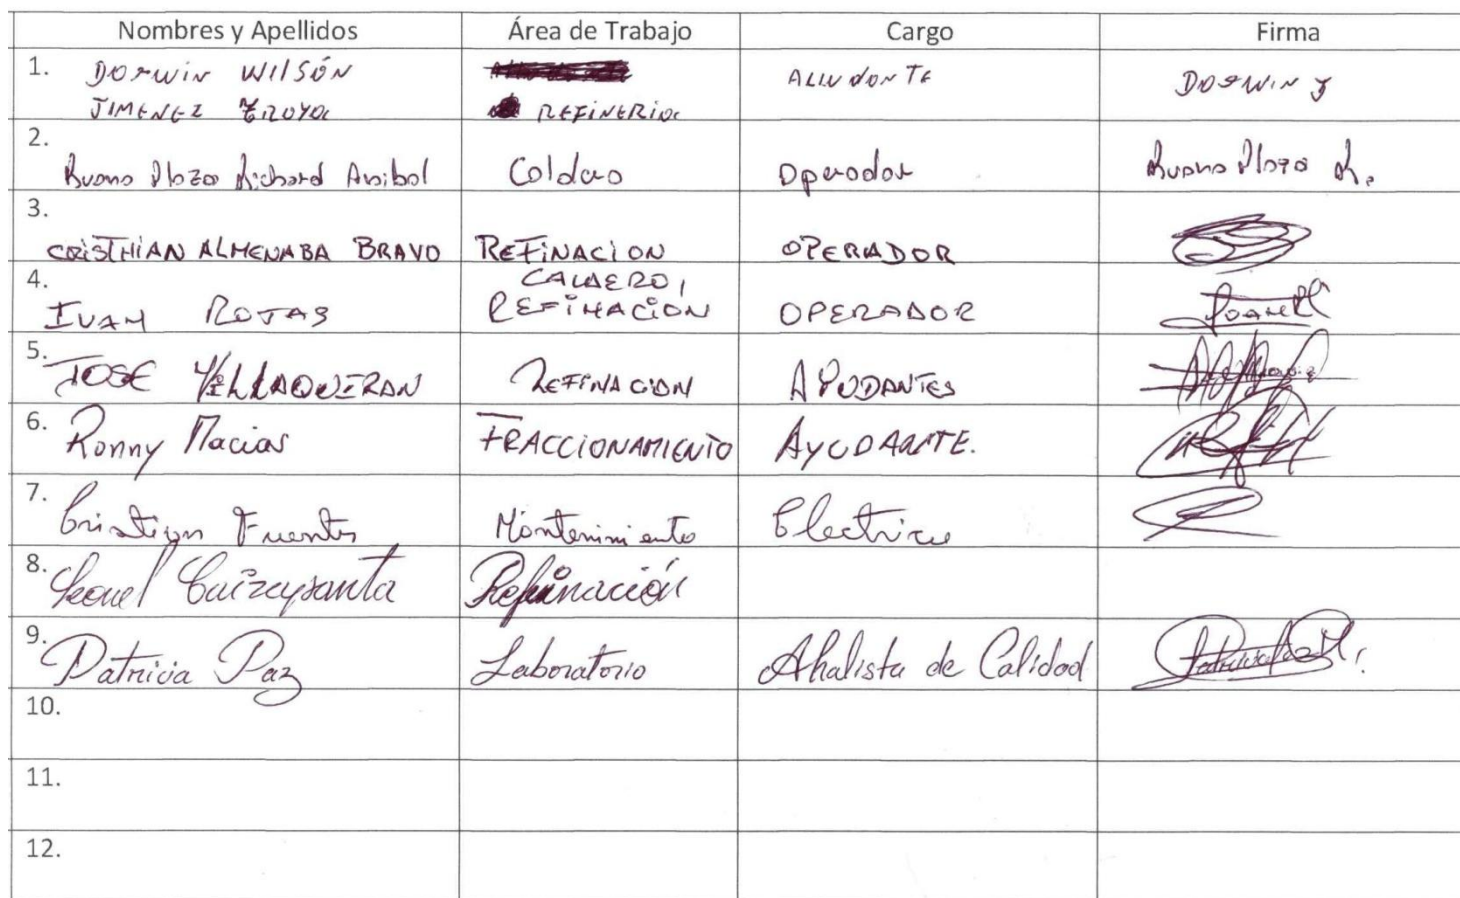 Nombres y Apellidos Área de Trabajo Cargo Firma
1. Dorwin Wilsón ALLUDANTE DORWIN J
JIMENEZ TROYA REFINERIA
2.
Bueno Plaza Richard Anibal Caldero Operador Bueno Plaza R.
3.
CRISTHIAN ALMENABA BRAVO REFINACION OPERADOR
4. CALDERO,
IVAN ROJAS REFINACIÓN OPERADOR
5.
JOSE VILLAQUIRAN REFINACION AYUDANTES
6. Ronny Macias FRACCIONAMIENTO AYUDANTE.
7. Cristian Fuentes Mantenimiento Electrico
8. Leonel Caizapanta Refinación
9. Patricia Paz Laboratorio Analista de Calidad
10.
11.
12.